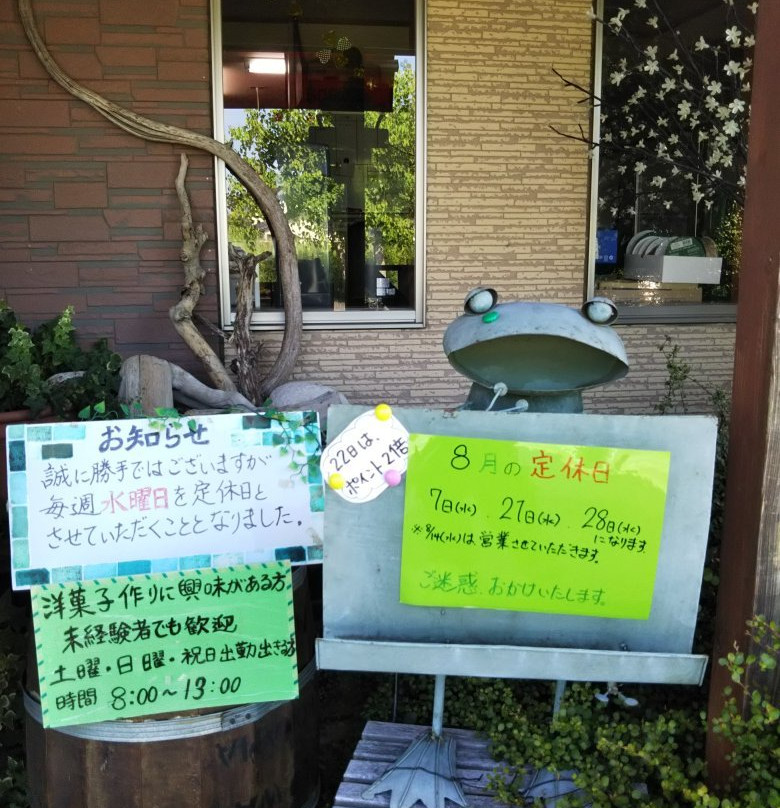 お知らせ
誠に勝手ではございますが
毎週水曜日を定休日と
させていただくこととなりました。
洋菓子作りに興味がある方
未経験者でも歓迎
土曜・日曜・祝日出勤出きる方
時間 8:00～13:00
22日は、
ポイント2倍
8月の定休日
7日(水)、21日(水)、28日(水)
になります
※8/14(水)は営業させていただきます。
ご迷惑、おかけいたします。